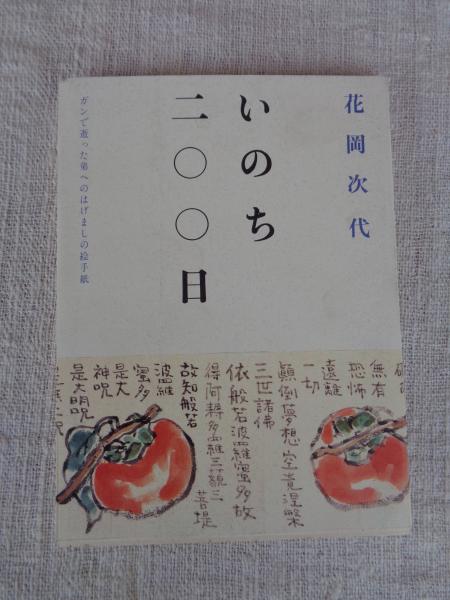 花岡次代
いのち
二〇〇日
ガンで逝った弟へのはげましの絵手紙
無有
恐怖
遠離
一切
顛倒夢想 究竟涅槃
三世諸佛
依般若波羅蜜多故
得阿耨多羅三藐三
菩提
故知般若
波羅
蜜多
是大
神呪
是大明呪